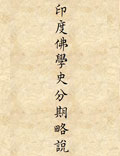 印度佛學史分期略說